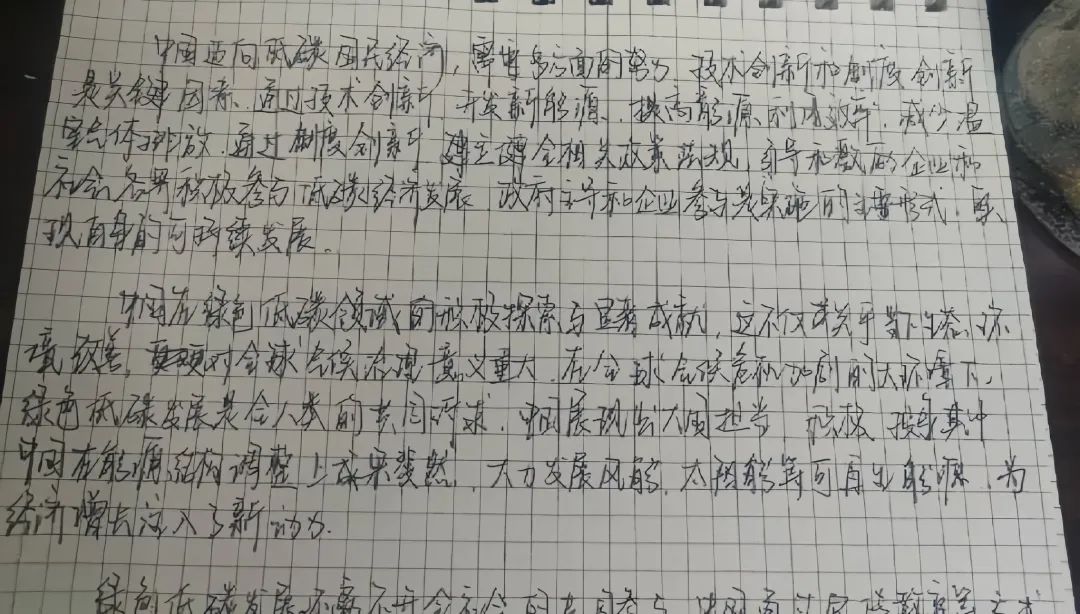 中国迈向低碳国民经济，需要多方面的努力，技术创新和制度创新
是关键因素，通过技术创新，开发新能源，提高能源利用效率，减少温
室气体排放，通过制度创新，建立健全相关政策法规，引导和激励企业和
社会各界积极参与低碳经济发展，政府主导和企业参与是实施的主要形式，实
现自身的可持续发展。
中国在绿色低碳领域的积极探索与显著成就，这不仅关乎生态环
境改善，更对全球气候治理意义重大，在全球气候危机加剧的大环境下，
绿色低碳发展是全人类的共同诉求，中国展现出大国担当，积极投身其中
中国在能源结构调整上成果斐然，大力发展风能，太阳能等可再生能源，为
经济增长注入了新动力.
绿色低碳发展离不开全社会的共同参与，中国通过